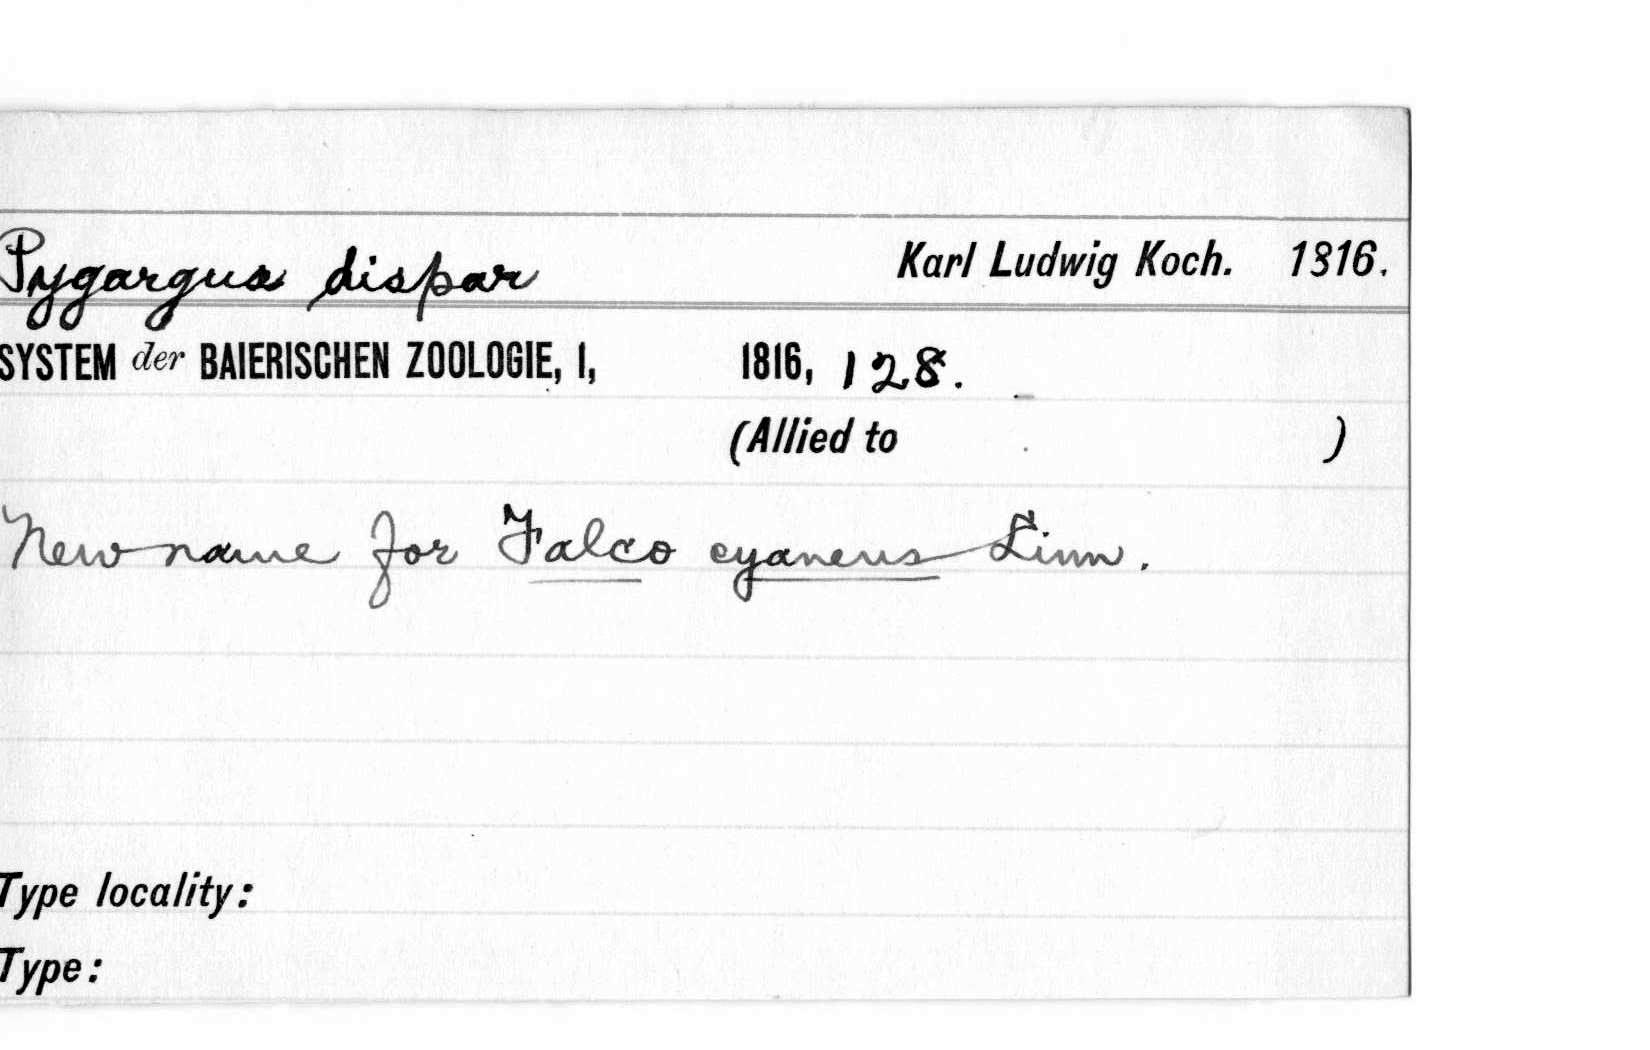 Pygargus dispar Karl Ludwig Koch. 1816.
SYSTEM der BAIERISCHEN ZOOLOGIE, I, 1816, 128.
(Allied to )
New name for Falco cyaneus Linn.
Type locality:
Type: